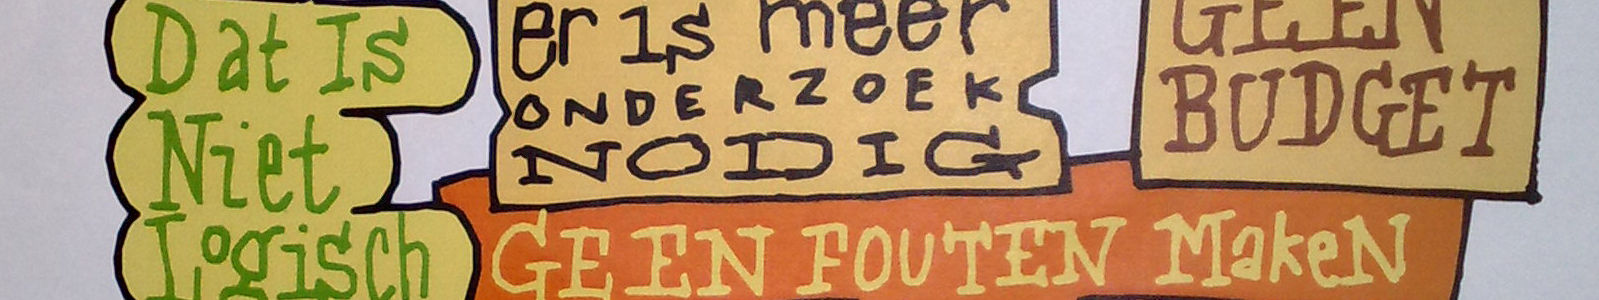 Dat Is
Niet
Logisch
er is meer
ONDERZOEK
NODIG
GEEN
BUDGET
GEEN FOUTEN MakeN